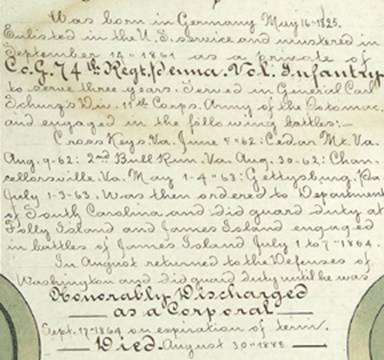 Was born in Germany May 16-1825.
Enlisted in the U.S. service and mustered in
September 14-1861 as a private of
Co. G. 74th Regt. Penna. Vol. Infantry
to serve three years. Served in General Carl
Schurz's Div. 11th Corps. Army of the Potomac.
and engaged in the following battles:-
Cross Keys. Va. June 8-62: Cedar Mt. Va.
Aug. 9-62: 2nd Bull Run. Va. Aug. 30-62: Chan-
cellorsville. Va. May 1-4-63: Gettysburg. Pa.
July 1-3-63. Was then ordered to Department
of South Carolina and did guard duty at
Folly Island and James Island engaged
in battles of James Island July 1 to 7-1864.
In August returned to the Defenses of
Washington and did guard duty until he was
Honorably Discharged
as a Corporal
Sept. 17-1864 on expiration of term.
Died August 30-1888